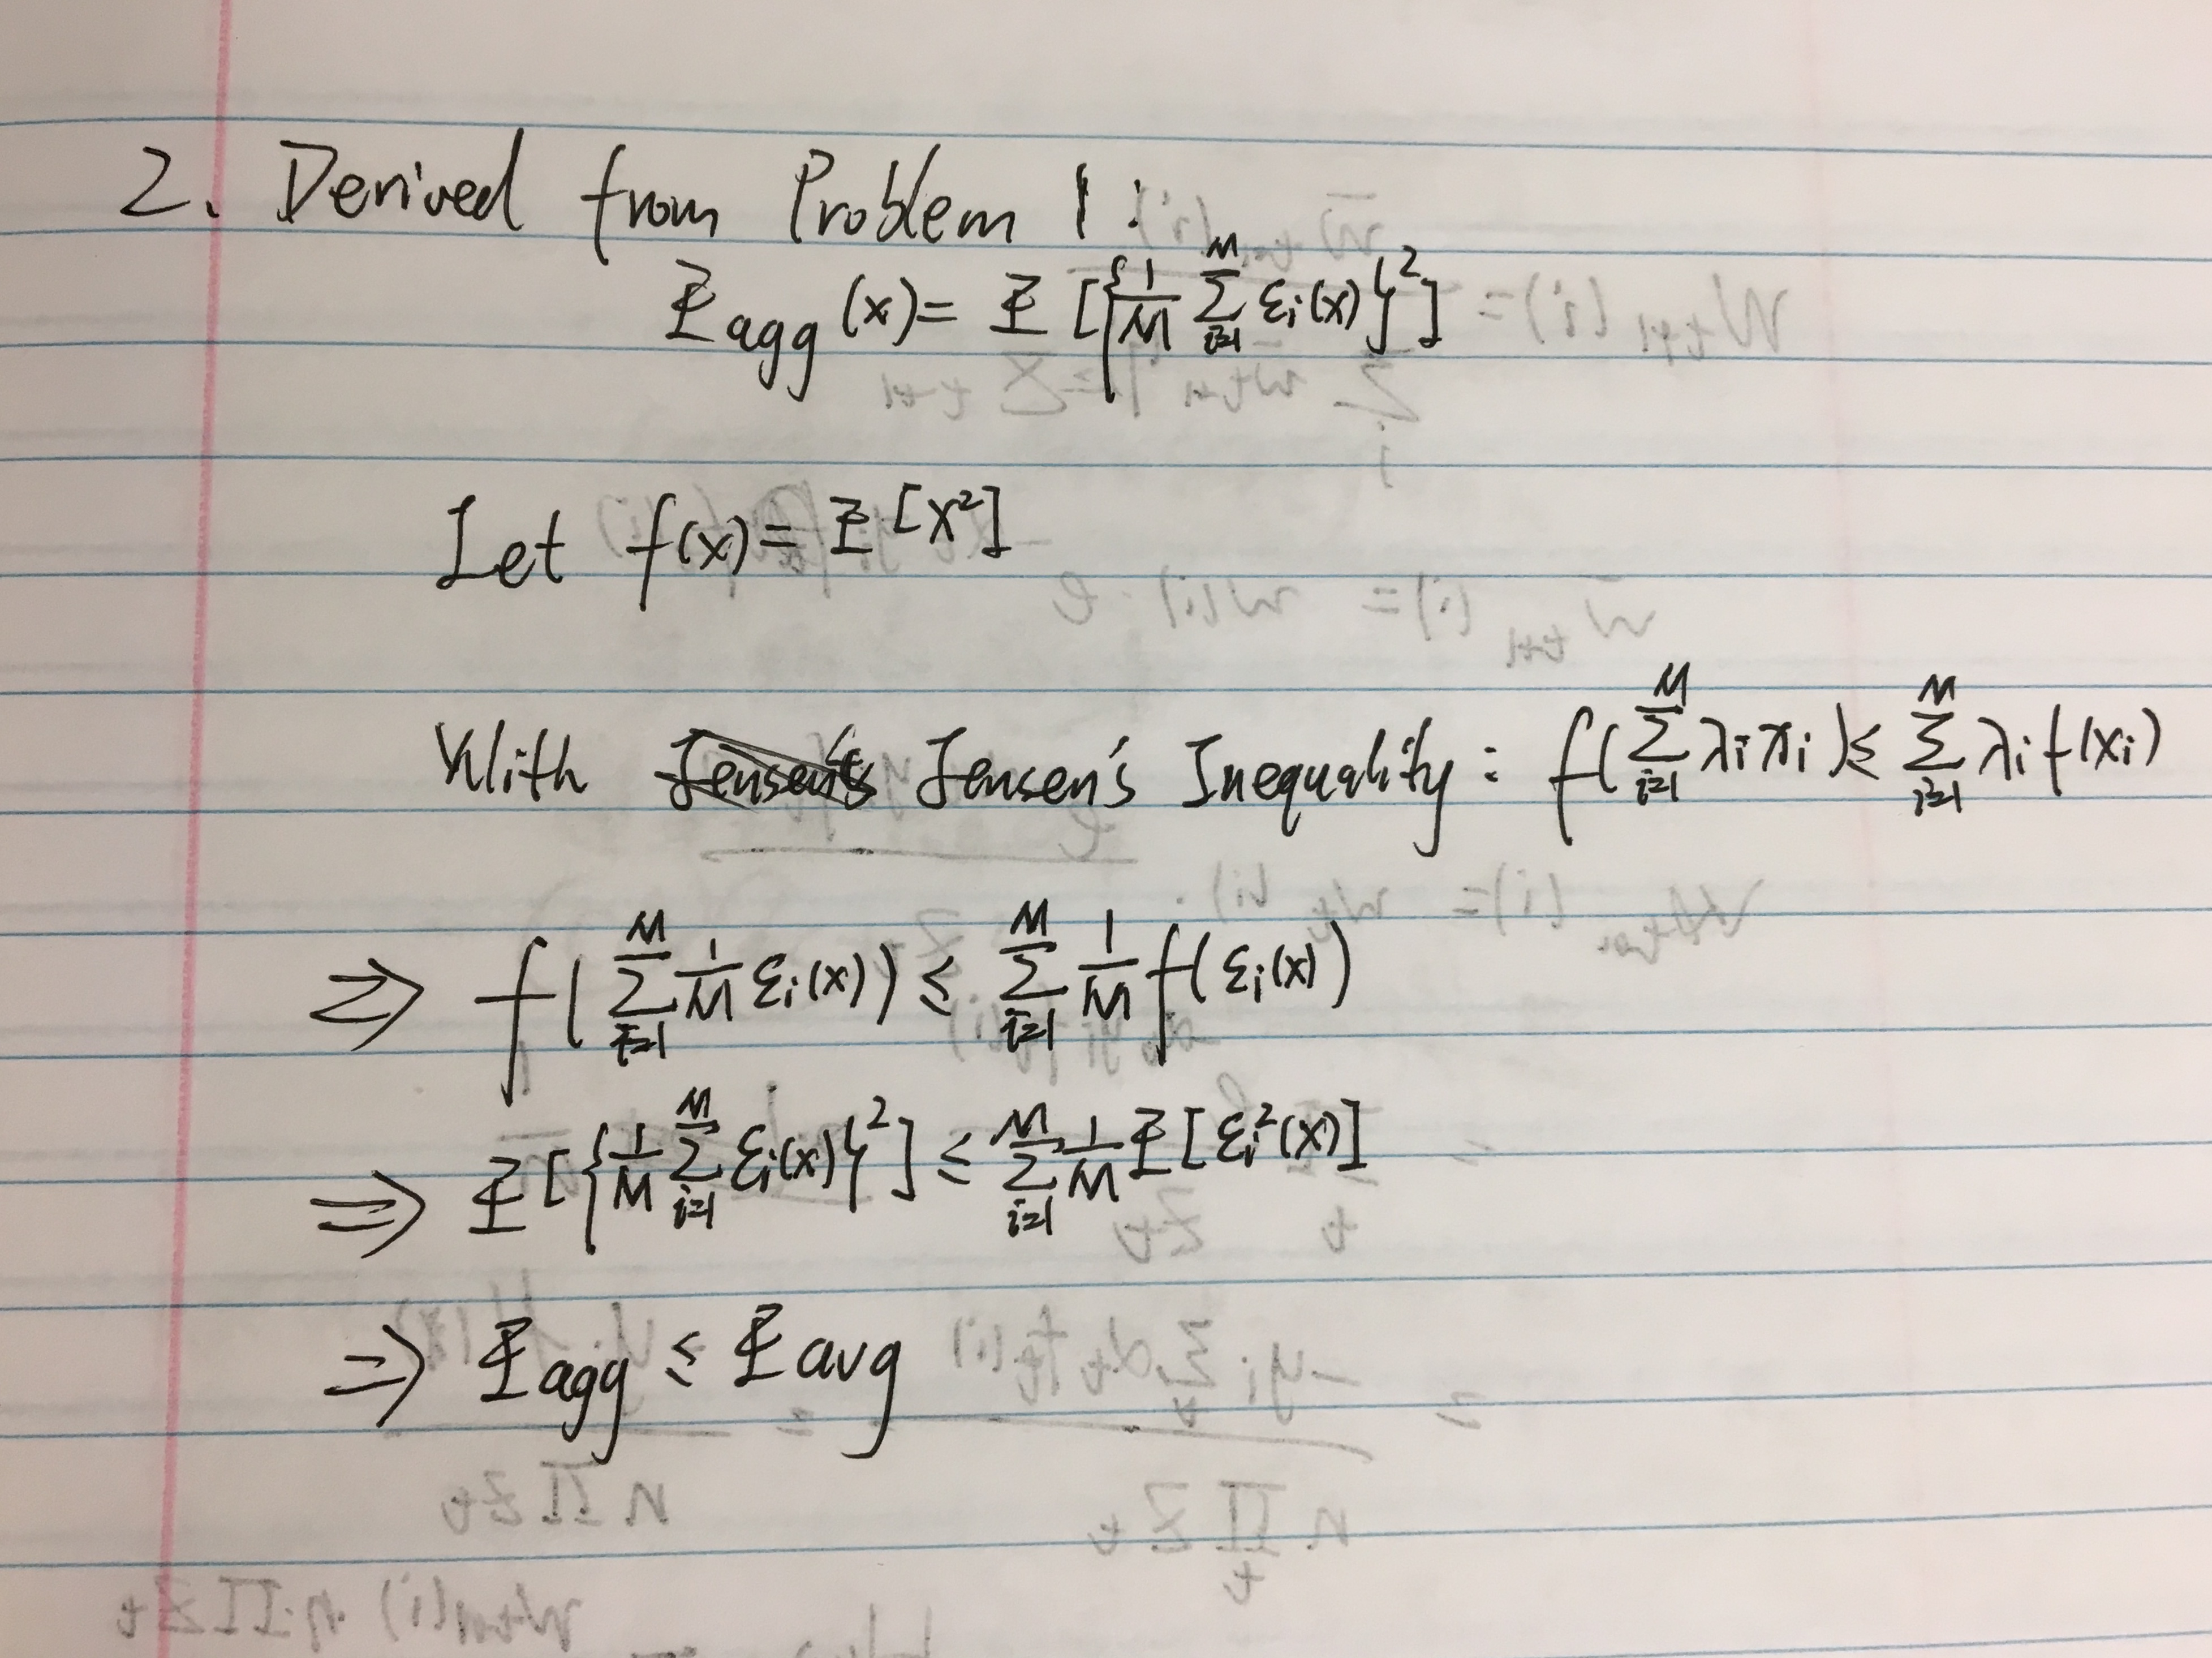 2. Derived from Problem 1:
E_agg(x) = E[{1/M Σ_{i=1}^{M} ε_i(x)}²]
Let f(x) = E[X²]
With Jensen's Jensen's Inequality: f(Σ_{i=1}^{M} λ_i x_i) ≤ Σ_{i=1}^{M} λ_i f(x_i)
⇒ f(Σ_{i=1}^{M} 1/M ε_i(x)) ≤ Σ_{i=1}^{M} 1/M f(ε_i(x))
⇒ E[{1/M Σ_{i=1}^{M} ε_i(x)}²] ≤ Σ_{i=1}^{M} 1/M E[ε_i²(x)]
⇒ E_agg ≤ E_avg